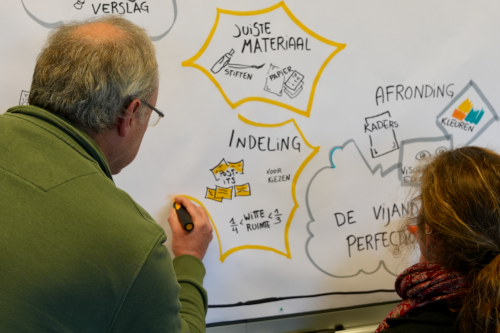 VERSLAG
JUISTE
MATERIAAL
STIFTEN
PAPIER
AFRONDING
KADERS
KLEUREN
INDELING
POST-
ITS
VOOR
KIEZEN
1/4 < WITTE < 1/3
RUIMTE
DE VIJAN
PERFECTIO